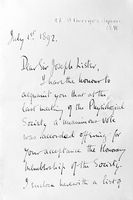 July 1st 1892.
Dear Sir Joseph Lister,
I have the honour to
acquaint you that at the
last meeting of the
Society a unanimous vote
was accorded offering for
your acceptance the Honorary
membership of the Society.
I enclose herewith a list of